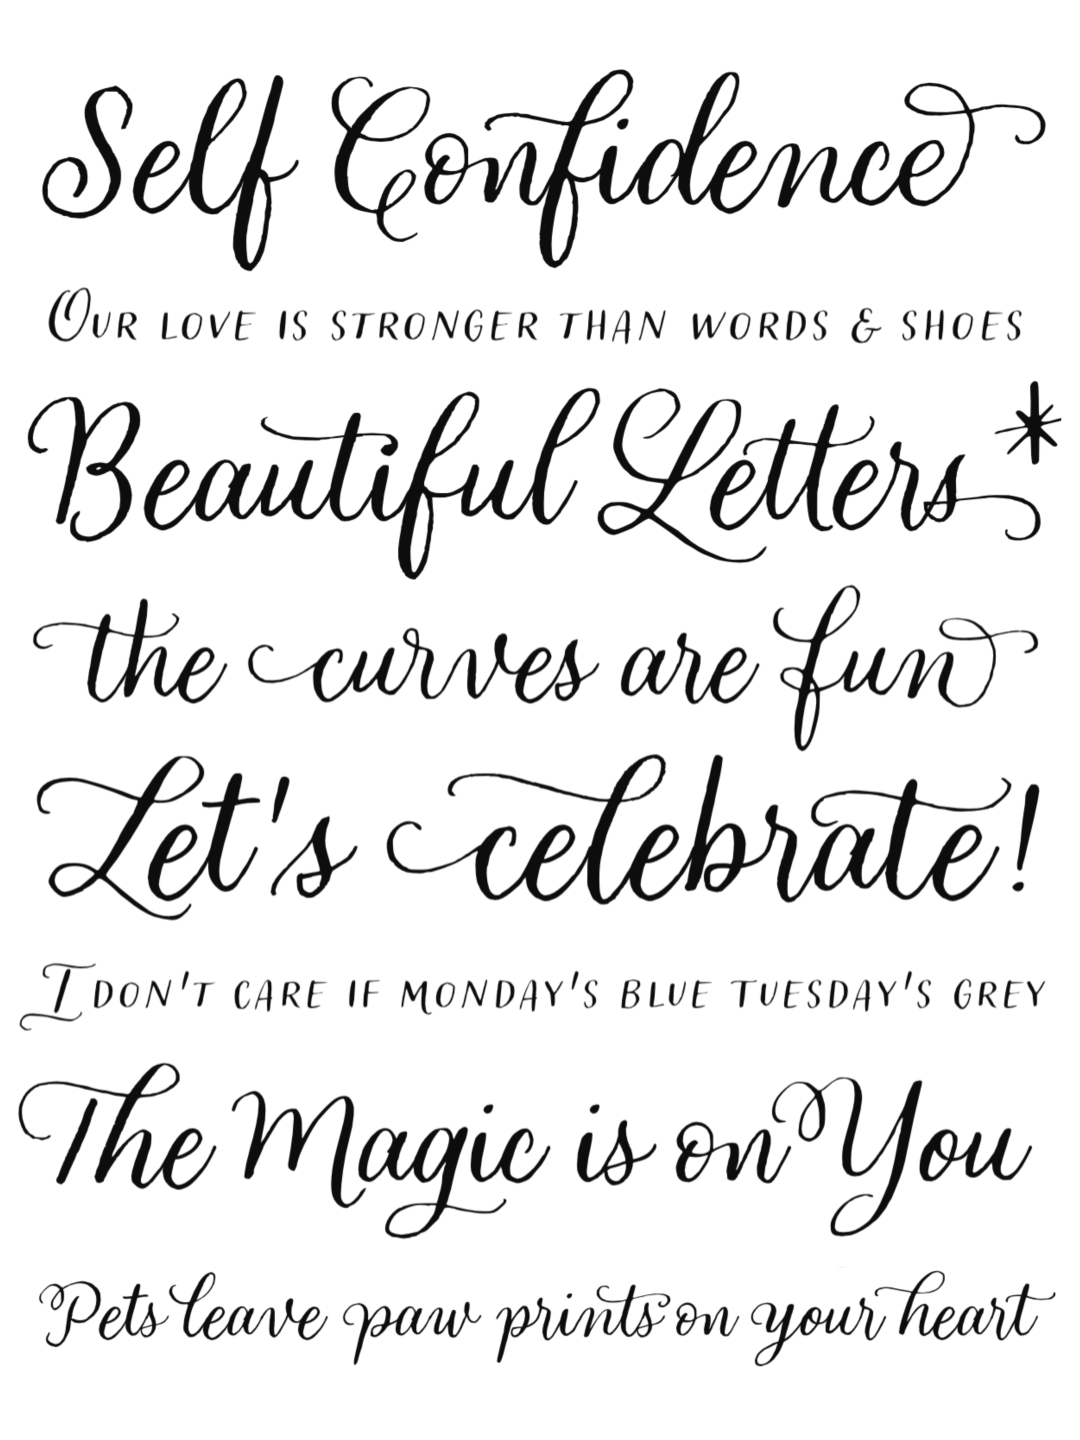 Self Confidence
OUR LOVE IS STRONGER THAN WORDS & SHOES
Beautiful Letters*
the curves are fun
Let's celebrate!
I DON'T CARE IF MONDAY'S BLUE TUESDAY'S GREY
The Magic is on You
Pets leave paw prints on your heart